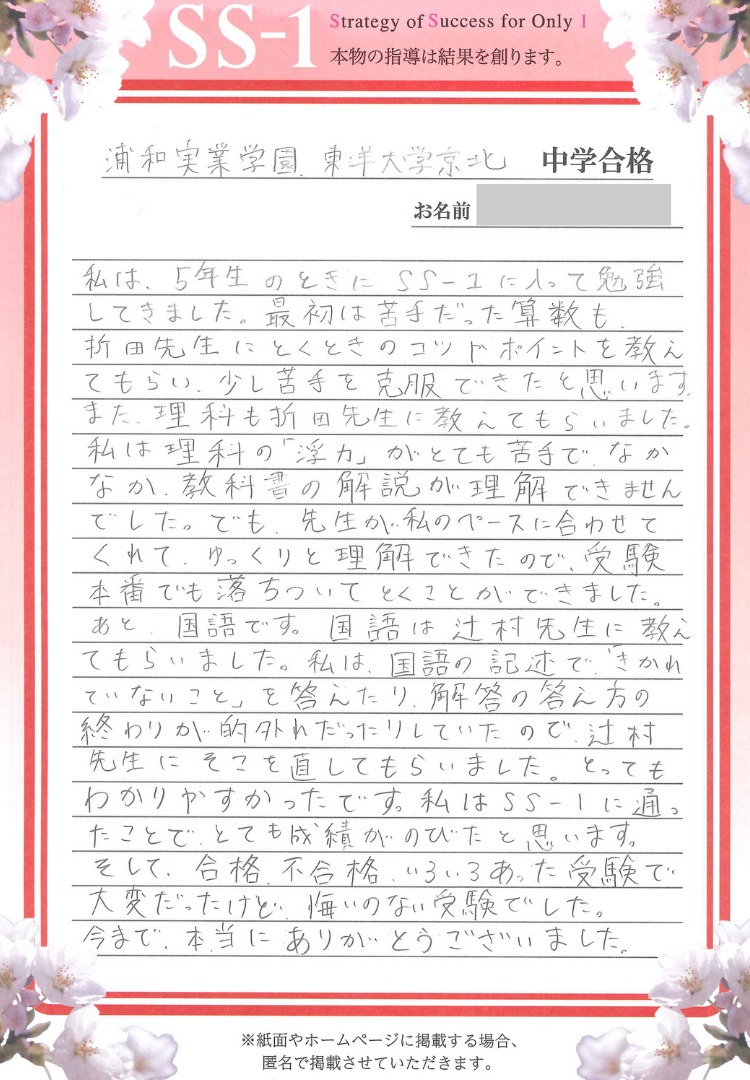 SS-1
Strategy of Success for Only 1
本物の指導は結果を創ります。
浦和実業学園、東洋大学京北 中学合格
お名前
私は、5年生のときにSS-1に入って勉強
してきました。最初は苦手だった算数も、
折田先生にとくときのコツやポイントを教え
てもらい、少し苦手を克服できたと思います。
また、理科も折田先生に教えてもらいました。
私は理科の「浮力」がとても苦手で、なか
なか、教科書の解説が理解できません
でした。でも、先生が私のペースに合わせて
くれて、ゆっくりと理解できたので、受験
本番でも落ちついてとくことができました。
あと、国語です。国語は辻村先生に教え
てもらいました。私は、国語の記述で、「きかれ
ていないこと」を答えたり、解答の答え方の
終わりが的外れだったりしていたので、辻村
先生にそこを直してもらいました。とっても
わかりやすかったです。私はSS-1に通っ
たことで、とても成績がのびたと思います。
そして、合格、不合格、いろいろあった受験で
大変だったけど、悔いのない受験でした。
今まで、本当にありがとうございました。
※紙面やホームページに掲載する場合、
匿名で掲載させていただきます。